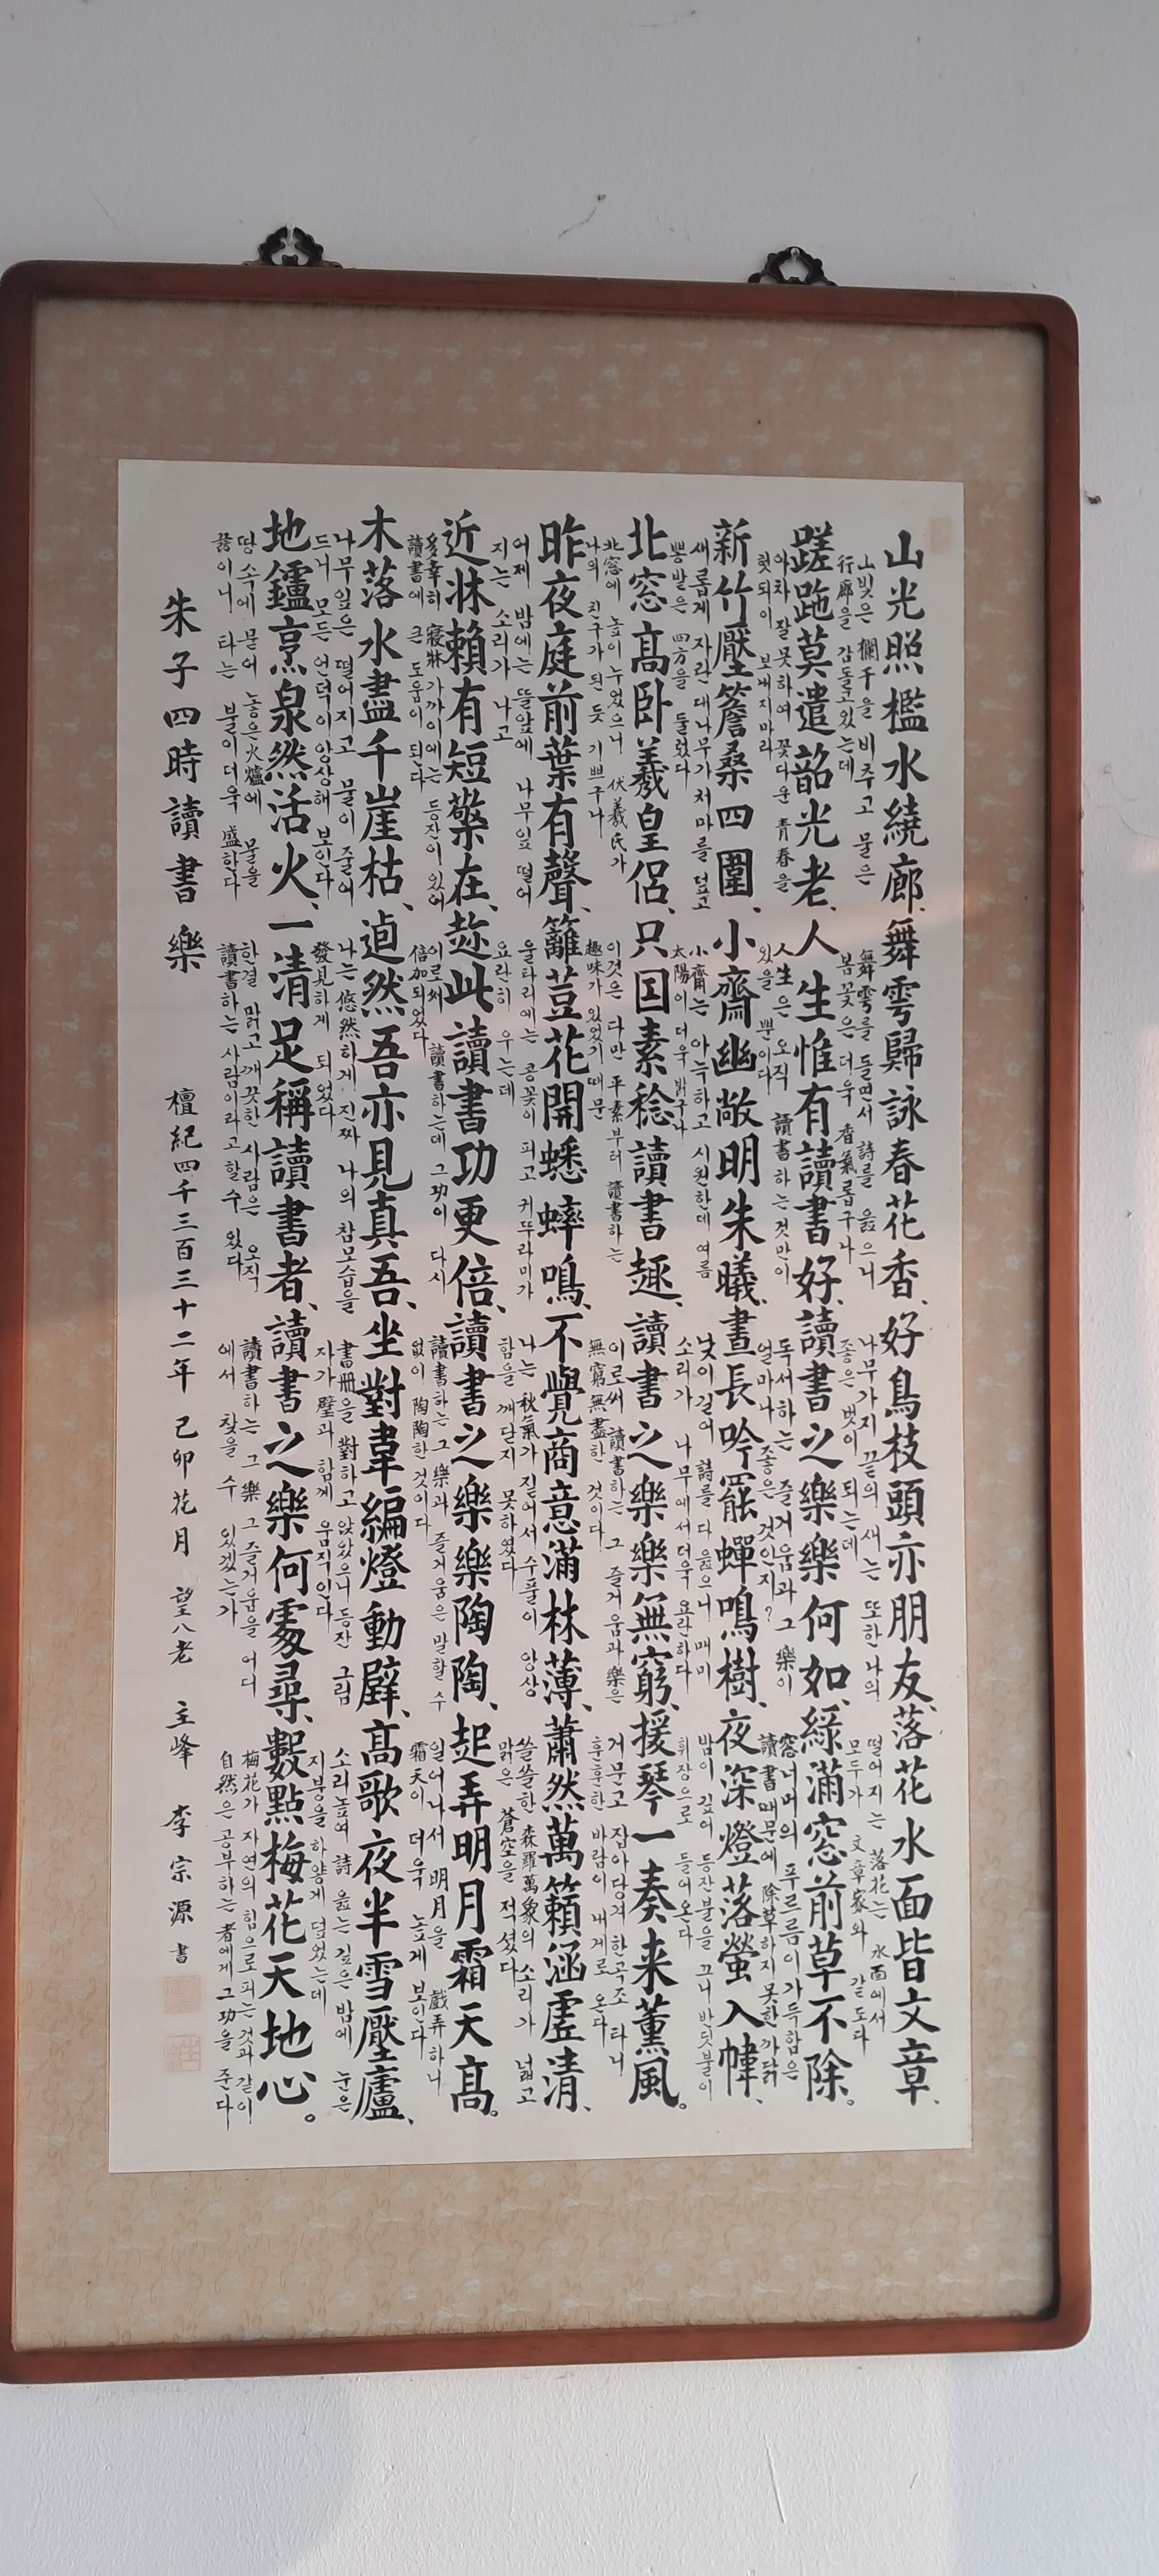 山光照檻水繞廊、舞雩歸詠春花香、好鳥枝頭亦朋友、落花水面皆文章、
山빛은 欄干을 비추고 물은
行廊을 감돌고 있는데
舞雩를 돌면서 詩를 읊으니
봄꽃은 더욱 香氣롭구나
나무가지 끝의 새는 또한 나의
좋은 벗이 되는데
떨어지는 落花는 水面에서
모두가 文章家와 같도다
蹉跎莫遣韶光老、人生惟有讀書好、讀書之樂樂何如、綠滿窓前草不除。
아차 잘못하여 꽃다운 青春을
헛되이 보내지마라
人生은 오직 讀書하는 것만이
있을 뿐이다
독서하는 즐거움과 그 樂이
얼마나 좋은 것인지?
窓너머의 푸르름이 가득함은
讀書때문에 除草하지 못한 까닭
新竹壓簷桑四圍、小齋幽敞明朱曦、晝長吟罷蟬鳴樹、夜深燈落螢入幃、
새롭게 자란 대나무가 처마를 덮고
뽕밭은 四方을 둘렀다
小齋는 아늑하고 시원한데 여름
太陽이 더욱 밝구나
낮이 길어 詩를 다 읊으니 매미
소리가 나무에서 더욱 요란하다
밤이 깊어 등잔불을 끄니 반딧불이
휘장으로 들어온다
北窓高卧羲皇侶、只囙素稔讀書趣、讀書之樂樂無窮、援琴一奏来薰風。
北窓에 높이 누었으니 伏羲氏가
나의 친구가 된 듯 기쁘구나
이것은 다만 平素부터 讀書하는
趣味가 있었기 때문
이로써 讀書하는 그 즐거움과 樂은
無窮無盡한 것이다
거문고 잡아당겨 한곡조 타니
훈훈한 바람이 내게로 온다
昨夜庭前葉有聲、籬荳花開蟋蟀鳴、不覺商意滿林薄、蕭然萬籟涵虛清、
어제 밤에는 뜰앞에 나무잎 떨어
지는 소리가 나고
울타리에는 콩꽃이 피고 귀뚜라미가
요란히 우는데
나는 秋氣가 짙어서 수풀이 앙상
함을 깨닫지 못하였다
쓸쓸한 森羅萬象의 소리가 넓고
맑은 蒼空을 적셨다
近牀賴有短檠在、趂此讀書功更倍、讀書之樂樂陶陶、起弄明月霜天高。
多幸히 寢牀 가까이에는 등잔이 있어
讀書에 큰 도움이 된다
이로써 讀書하는데 그 功이 다시
倍加되었다
讀書하는 그 樂과 즐거움은 말할 수
없이 陶陶한 것이다
일어나서 明月을 戲弄하니
霜天이 더욱 높게 보인다
木落水盡千崖枯、逈然吾亦見真吾、坐對韋編燈動壁、高歌夜半雪壓廬、
나무잎은 떨어지고 물이 줄어
드니 모든 언덕이 앙상해 보인다
나는 悠然하게 진짜 나의 참모습을
發見하게 되었다
書冊을 對하고 앉았으니 등잔 그림
자가 壁과 함께 움직인다
소리높여 詩 읊는 깊은 밤에 눈은
지붕을 하얗게 덮었는데
地鑪烹泉然活火、一清足稱讀書者、讀書之樂何處尋、數點梅花天地心。
땅 속에 묻어 놓은 火爐에 물을
끓이니 타는 불이 더욱 盛한다
한결 맑고 깨끗한 사람은 오직
讀書하는 사람이라고 할 수 있다
讀書하는 그 樂 그 즐거움을 어디
에서 찾을 수 있겠는가
梅花가 자연의 힘으로 피는 것과 같이
自然은 공부하는 者에게 그 功을 준다
朱子四時讀書樂 檀紀四千三百三十二年 己卯 花月 望八老 主峰 李宗源 書